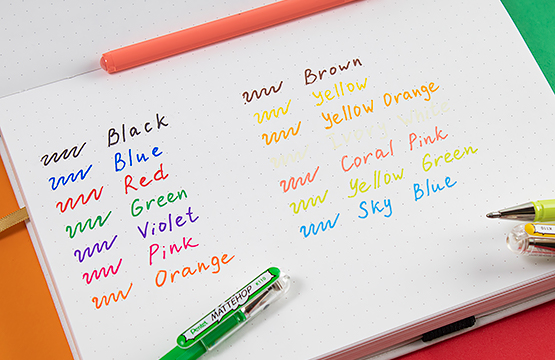 Black
Blue
Red
Green
Violet
Pink
Orange
Brown
Yellow
Yellow Orange
Coral Pink
Yellow Green
Sky Blue
Pentel MATTEHOP